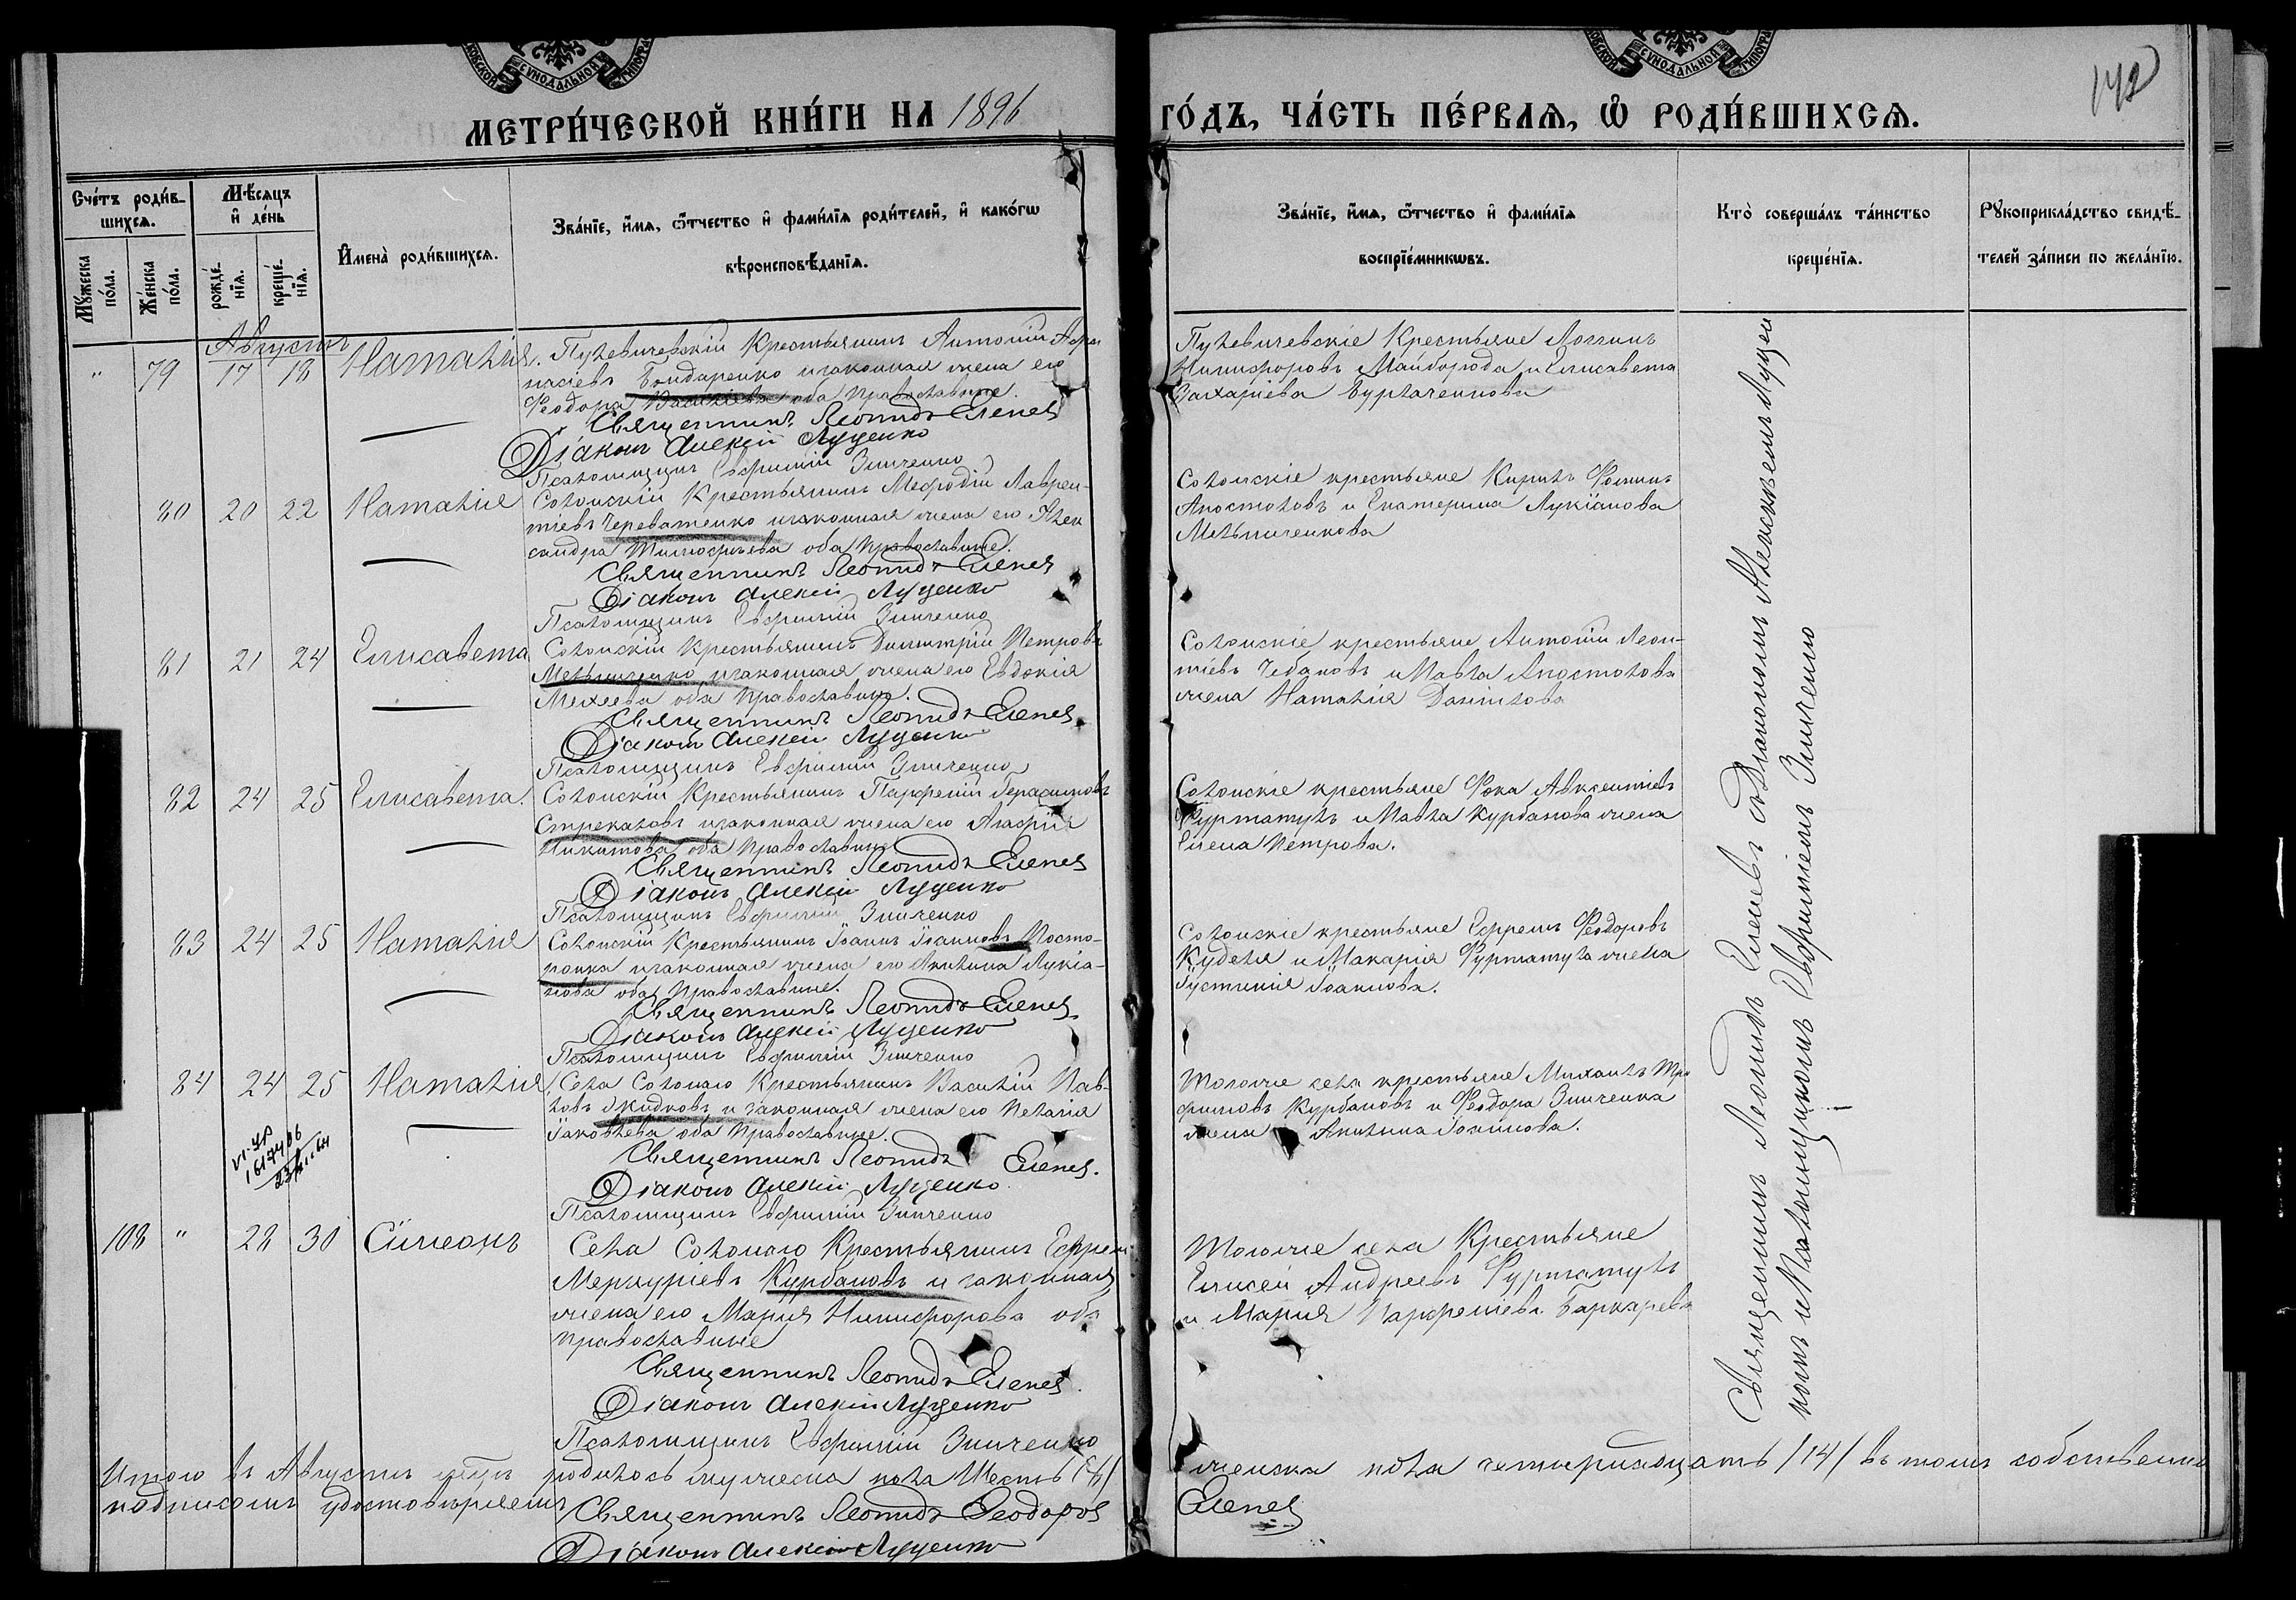 МЕТРИ́ЧЕСКОЙ КНИ́ГИ НА 1896 ГО́ДЪ, ЧА́СТЬ ПЕ́РВАѦ, Ѡ҆ РОДИ́ВШИХСѦ.
142
Сче́тъ роди́в-
шихсѧ.
Мꙋ́жеска по́ла.
Же́нска по́ла.
Мѣ́сѧцъ и҆ де́нь
рожде́-
нїѧ.
креще́-
нїѧ.
И҆мена̀ роди́вшихсѧ.
Зва́нїе, и҆́мѧ, ѻ҆́тчество и҆ фами́лїѧ роди́телей, и҆ како́гѡ
вѣроисповѣ́данїѧ.
Зва́нїе, и҆́мѧ, ѻ҆́тчество и҆ фами́лїѧ
воспрїе́мникѡвъ.
Кто̀ соверша́лъ та́инство
креще́нїѧ.
Рꙋкоприкла́дство свидѣ́-
телей за́писи по жела́нїю.
Августъ
" 79 17 18 Наталія.
Крестьянинъ Антоній
Бондаренко и законная жена его
Феодора оба православные.
Священникъ Леонидъ Еленевъ
Діаконъ Алексій Луценко
Псаломщикъ Евфимій Зинченко
крестьяне Логгинъ
Никифоровъ Майборода и Елисавета
Захаріева
80 20 22 Наталія
Солонскій Крестьянинъ Мефодій Лаврен-
тіевъ Череватенко и законная жена его Алек
сандра Тимофѣева оба православные.
Священникъ Леонидъ Еленевъ
Діаконъ Алексій Луценко
Псаломщикъ Евфимій Зинченко
Солонскіе крестьяне Кирилъ Фоминъ
Апостоловъ и Екатерина Лукіанова
Мельниченкова
81 21 24 Елисавета
Солонскій Крестьянинъ Димитрій Петровъ
Мельниченко и законная жена его Евдокія
Михеева оба православные.
Священникъ Леонидъ Еленевъ
Діаконъ Алексій Луценко
Псаломщикъ Евфимій Зинченко
Солонскіе крестьяне Антоній Леон-
тіевъ Чебановъ и Павла Апостолова
жена Наталія Данілова
82 24 25 Елисавета.
Солонскій Крестьянинъ Парфеній Герасимовъ
Стрекаловъ и законная жена его Агафія
Никитова оба православные
Священникъ Леонидъ Еленевъ
Діаконъ Алексій Луценко
Псаломщикъ Евфимій Зинченко
Солонскіе крестьяне Фока Авксентіевъ
Фурматулъ и Павла Курбанова жена
Елена Петрова.
83 24 25 Наталія
Солонскій Крестьянинъ Іоаннъ Іоанновъ Посто-
ронка и законная жена его Акилина Лукіа-
нова оба православные.
Священникъ Леонидъ Еленевъ
Діаконъ Алексій Луценко
Псаломщикъ Евфимій Зинченко
Солонскіе крестьяне Ефремъ Феодоровъ
Куделя и Макарія Фурматула жена
Іустинія Іоаннова.
84 24 25 Наталія
Села Солонаго Крестьянинъ Василій Пав-
ловъ Жидковъ и законная жена его Пелагія
Іаковлева оба православные.
Священникъ Леонидъ Еленевъ.
Діаконъ Алексій Луценко
Псаломщикъ Евфимій Зинченко
Тогоже села крестьяне Михаилъ Тро
фимовъ Курбановъ и Феодора Зинченка
жена Акилина Іоаннова.
108 " 28 30 Сімеонъ
Села Солонаго Крестьянинъ Ефремъ
Меркуріевъ Курбановъ и законная
жена его Марія Никифорова оба
православные
Священникъ Леонидъ Еленевъ.
Діаконъ Алексій Луценко
Псаломщикъ Евфимій Зинченко
Тогоже села Крестьяне
Елисей Андреевъ Фурматулъ
и Марія Парфеніева
Священникъ Леонидъ Еленевъ съ Діакономъ Алексіемъ Луцен
комъ и Псаломщикомъ Евфиміемъ Зинченко
Итого въ Августѣ родилось мужеска пола Шесть женска пола четырнадцать /14/ въ томъ собственно
подписомъ удостовѣряемъ
Священникъ Леонидъ Феодоровъ Еленевъ
Діаконъ Алексій Луценко